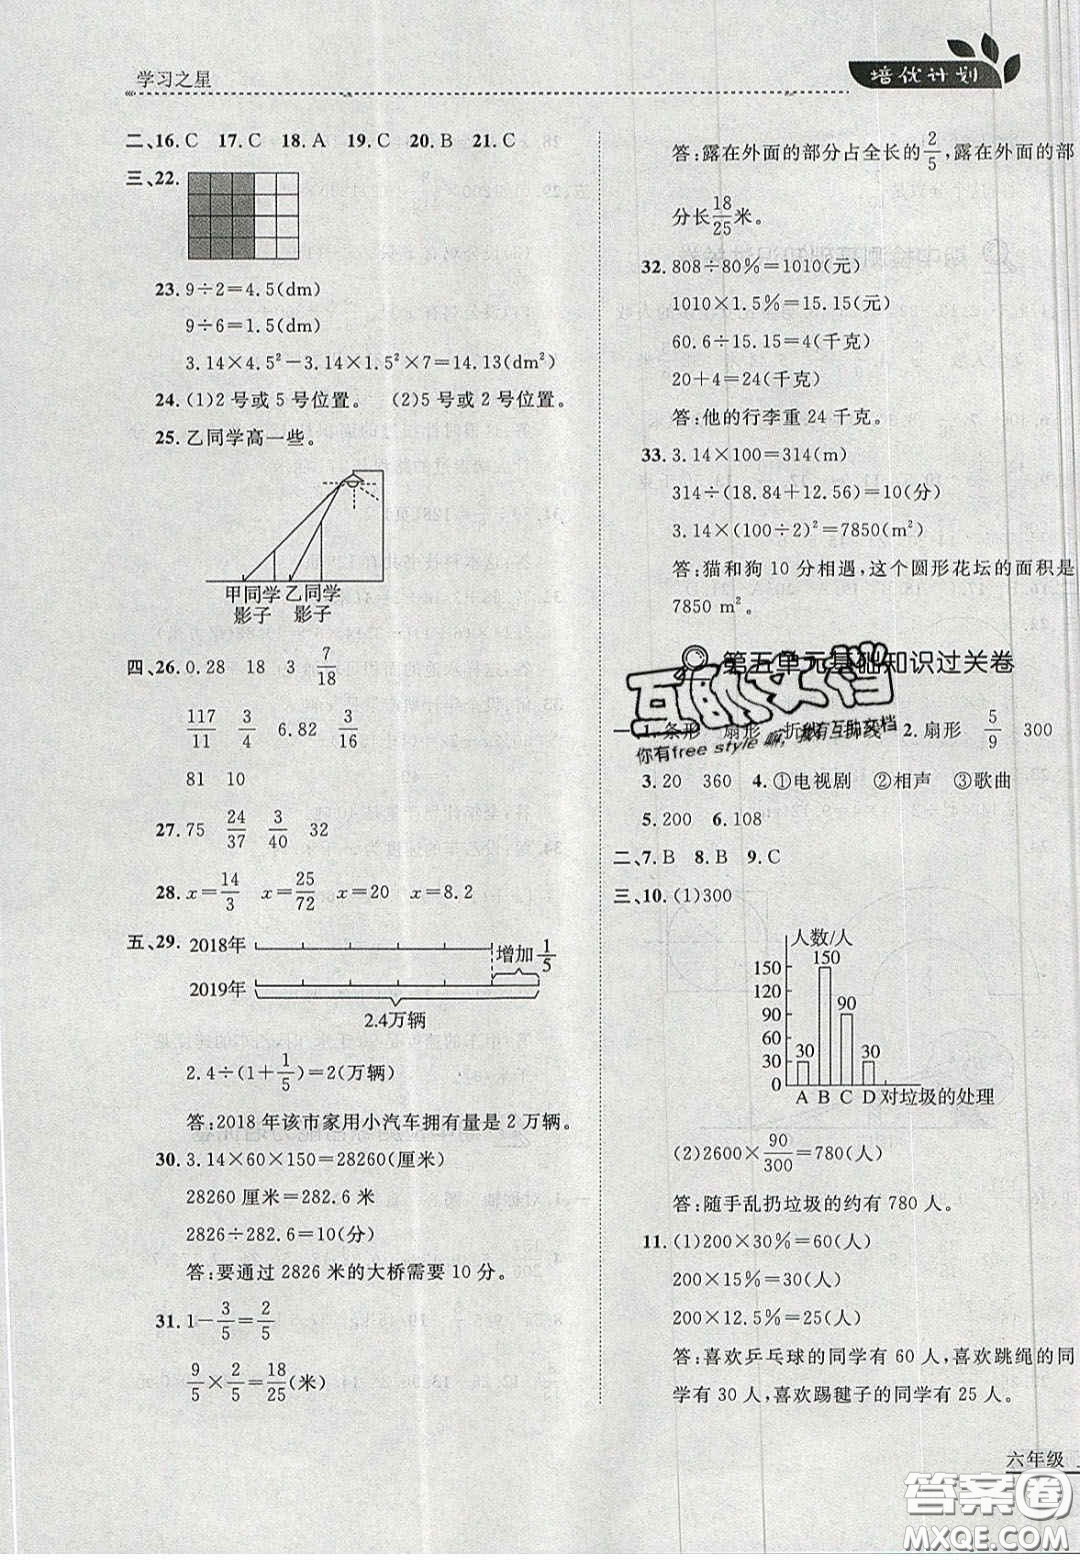 学习之星
培优计划
二、16. C 17. C 18. A 19. C 20. B 21. C
三、22.
23. 9÷2=4.5(dm)
9÷6=1.5(dm)
3.14×4.5²-3.14×1.5²×7=14.13(dm²)
24. (1)2号或5号位置。 (2)5号或2号位置。
25. 乙同学高一些。
甲同学 乙同学
影子 影子
四、26. 0.28 18 3 7/18
117/11 3/4 6.82 3/16
81 10
27. 75 24/37 3/40 32
28. x=14/3 x=25/72 x=20 x=8.2
五、29. 2018年 增加1/5
2019年
2.4万辆
2.4÷(1+1/5)=2(万辆)
答:2018年该市家用小汽车拥有量是2万辆。
30. 3.14×60×150=28260(厘米)
28260厘米=282.6米
2826÷282.6=10(分)
答:要通过2826米的大桥需要10分。
31. 1-3/5=2/5
9/5×2/5=18/25(米)
答:露在外面的部分占全长的2/5,露在外面的部
分长18/25米。
32. 808÷80%=1010(元)
1010×1.5%=15.15(元)
60.6÷15.15=4(千克)
20+4=24(千克)
答:他的行李重24千克。
33. 3.14×100=314(m)
314÷(18.84+12.56)=10(分)
3.14×(100÷2)²=7850(m²)
答:猫和狗10分相遇,这个圆形花坛的面积是
7850 m²。
第五单元基础知识过关卷
互助文档
你有free style嘛,我有互助文档
一、1. 条形 扇形 折线 2. 扇形 5/9 300
3. 20 360 4. ①电视剧 ②相声 ③歌曲
5. 200 6. 108
二、7. B 8. B 9. C
三、10. (1)300
人数/人
150
150
120
90 90
60
30 30 30
0
A B C D 对垃圾的处理
(2)2600×90/300=780(人)
答:随手乱扔垃圾的约有780人。
11. (1)200×30%=60(人)
200×15%=30(人)
200×12.5%=25(人)
答:喜欢乒乓球的同学有60人,喜欢跳绳的同
学有30人,喜欢踢毽子的同学有25人。
六年级
答案圈
MXQE.COM